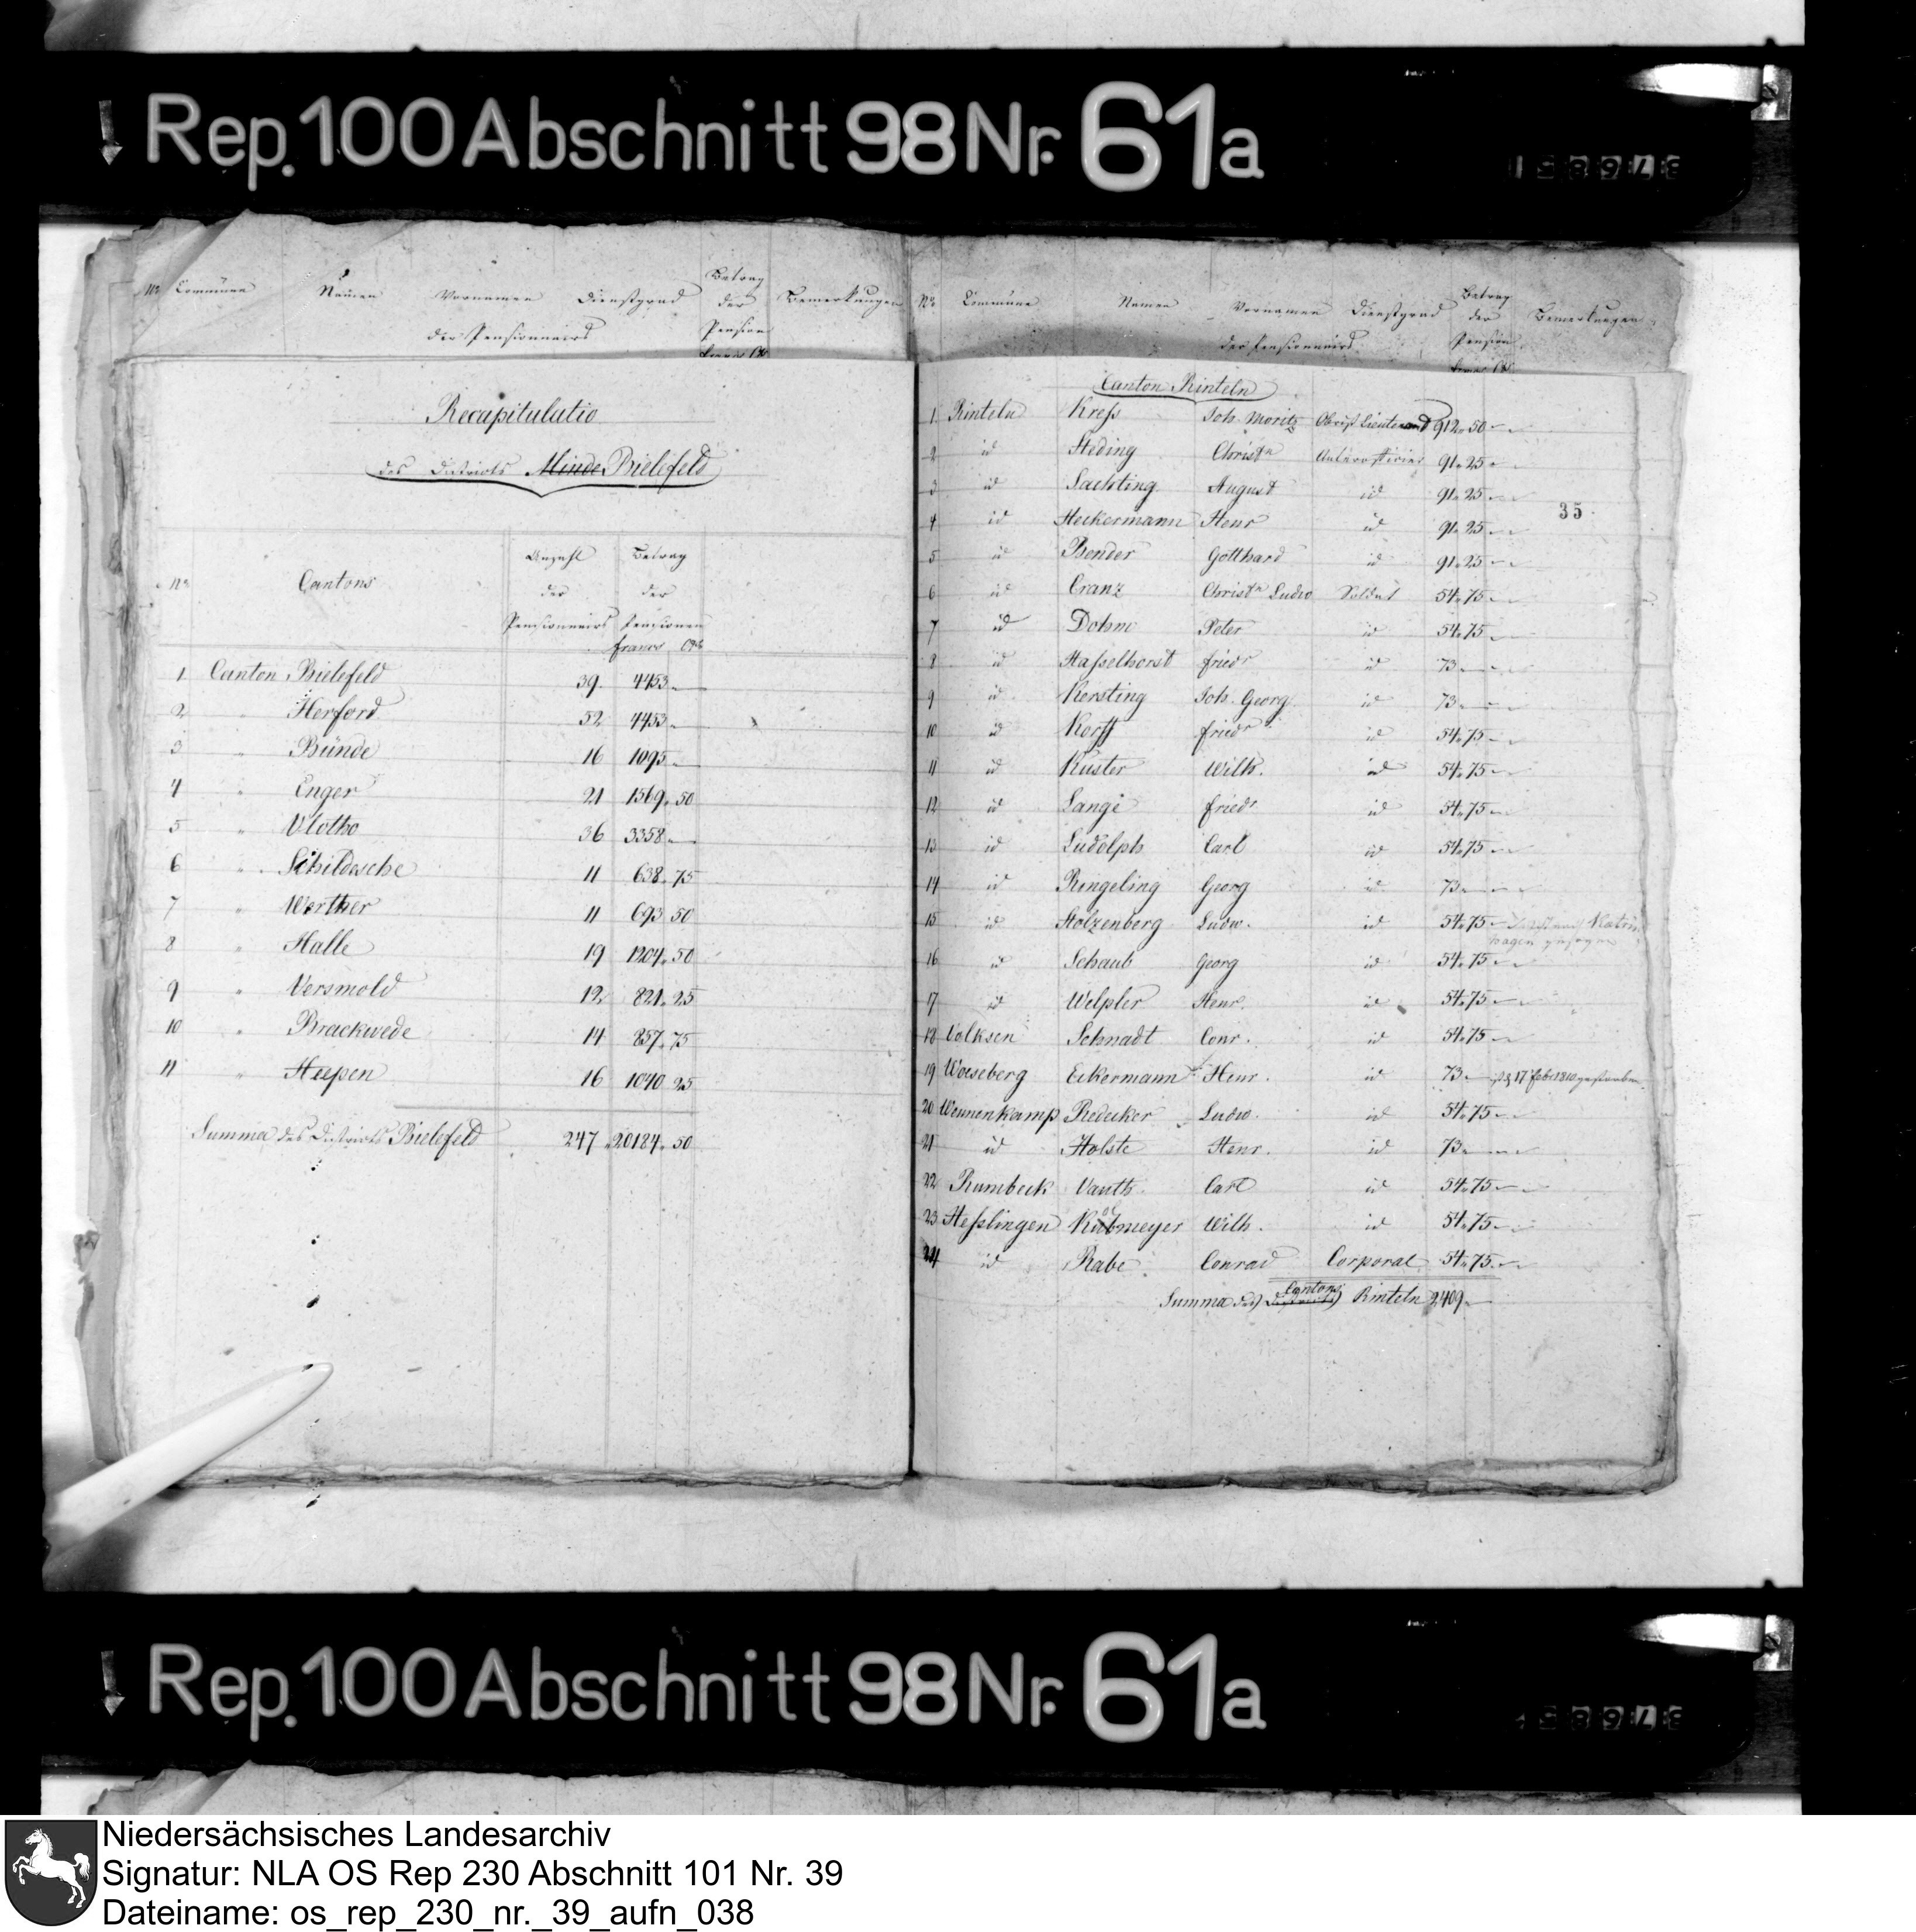 Rep. 100 Abschnitt 98 Nr. 61a
No Commune Namen Vornamen Dienstgrad Betrag der Pension Bemerkungen
der Pensionnairs
francs Cts
Recapitulatio
des Districts Minde Bielefeld
No Cantons Anzahl der Pensionnairs Betrag der Pensionen
francs Cts
1 Canton Bielefeld 39. 4453 "
2 " Herford 52 4453 "
3 " Bünde 16 1095 "
4 " Enger 21 1569. 50
5 " Vlotho 36 3358 "
6 " Schildesche 11 638. 75
7 " Werther 11 693 50
8 " Halle 19 1204. 50
9 " Versmold 12 821. 25
10 " Brackwede 14 857. 75
11 " Heepen 16 1040 25
Summa des Districts Bielefeld 247 20184. 50
No Commune Namen Vornamen Dienstgrad Betrag der Pension Bemerkungen
der Pensionnairs
francs Cts
Canton Rinteln
35
1 Rinteln Kress Joh. Moritz Obrist Lieutenant 912. 50
2 id Heding Christn Unterofficier 91. 25
3 id Sachting August id 91. 25
4 id Heckermann Henr id 91. 25
5 id Bender Gotthard id 91. 25
6 id Cranz Christn Ludw Soldat 54. 75
7 id Dohme Peter id 54. 75
8 id Hasselhorst Friedr id 73
9 id Kersting Joh. Georg id 73
10 id Korff Friedr id 54. 75
11 id Küster Wilh. id 54. 75
12 id Lange Friedr id 54. 75
13 id Ludolph Carl id 54. 75
14 id Ringeling Georg id 73
15 id Stolzenberg Ludw. id 54. 75 ist nach Katrinhagen gezogen
16 id Schaub Georg id 54. 75
17 id Welpler Henr. id 54. 75
18 Volksen Schnadt Conr. id 54. 75
19 Woeseberg Eckermann Henr. id 73 ist 17 Febr 1810 gestorben
20 Wennenkamp Redecker Ludw. id 54. 75
21 id Holste Henr. id 73
22 Rumbeck Vauth Carl id 54. 75
23 Hesslingen Kubmeyer Wilh. id 54. 75
24 id Rabe Conrad Corporal 54. 75
Summa des Districts Cantons Rinteln 2409
Rep. 100 Abschnitt 98 Nr. 61a
Niedersächsisches Landesarchiv
Signatur: NLA OS Rep 230 Abschnitt 101 Nr. 39
Dateiname: os_rep_230_nr._39_aufn_038